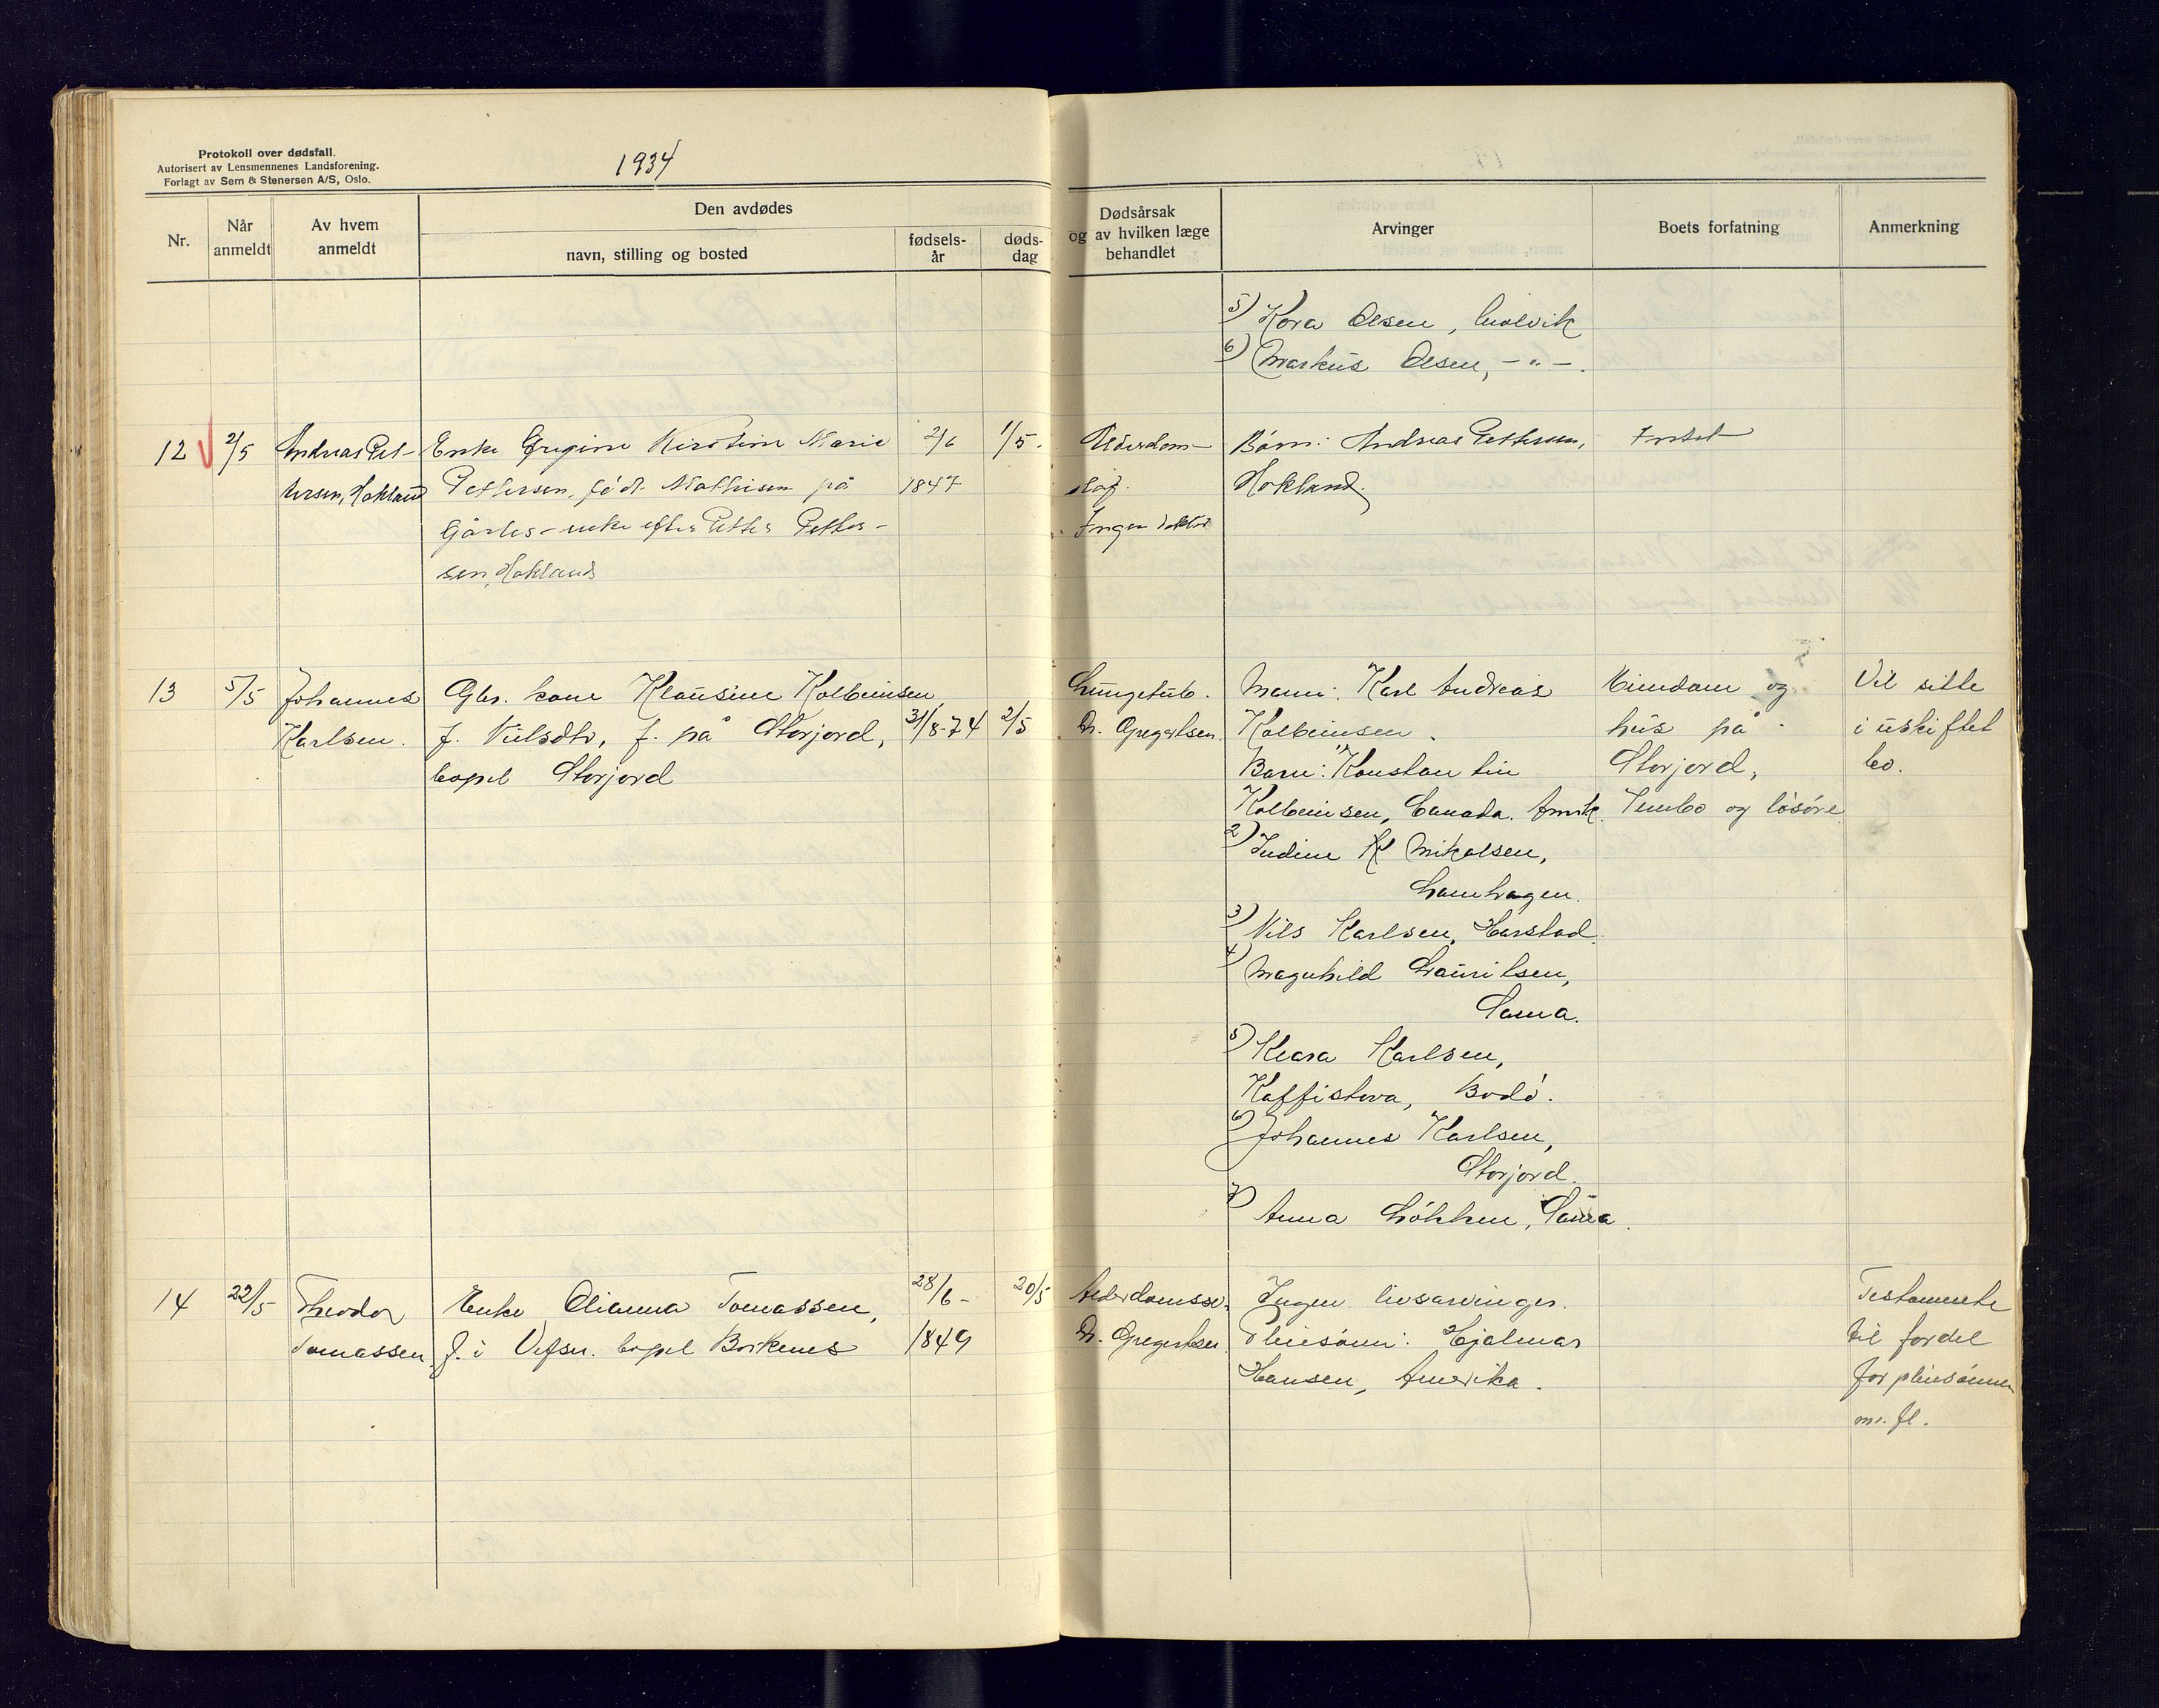 Protokoll over dødsfall.
Autorisert av Lensmennenes Landsforening.
Forlagt av Sem & Stenersen A/S, Oslo.
1934
Nr.
Når anmeldt
Av hvem anmeldt
Den avdødes
navn, stilling og bosted
fødsels-år
døds-dag
Dødsårsak
og av hvilken læge
behandlet
Arvinger
Boets forfatning
Anmerkning
5) Kora Olsen,
6) Markus Olsen, - " - .
12 2/5 Andreas Pet-
tersen, Hokland
Enke Gregine Kirstine Marie
Pettersen, født Mathisen på
enke efter Petter Petter-
sen, Hokland
2/6
1847
1/5.
Alderdom-
slåp.
Ingen doktor
Barn: Andreas Pettersen,
Hokland.
Intet
13 5/5 Johannes
Karlsen.
Gbr. kone Klausine Kolbeinsen,
f. Nilsdtr, f. på Storjord,
bopel Storjord
31/8-74 2/5
Lungetub.
Dr. Gregertsen.
Mann: Karl Andreas
Kolbeinsen.
Barn: 1) Konstantin
Kolbeinsen, Canada. Amrk.
2) Indine K Mikalsen,
3) Nils Karlsen, Harstad.
4) Magnhild Lauritsen,
Sama.
5) Klara Karlsen,
Kaffistova, Bodö.
6) Johannes Karlsen,
Storjord.
7) Anna Løkken, Sama.
Eiendom og
hus på
Storjord,
Innbo og løsøre
Vil sitte
i uskiftet
bo.
14 22/5 Theodor
Tomassen
Enke Olianna Tomassen,
f. i Vefsn. bopel Borkenes
28/6-
1849
20/5
Alderdomssv.
Dr. Gregertsen
Ingen livsarvinger.
Pleiesønn: Hjalmar
Hansen, Amerika.
Testamente
til fordel
for pleiesønnen
m. fl.